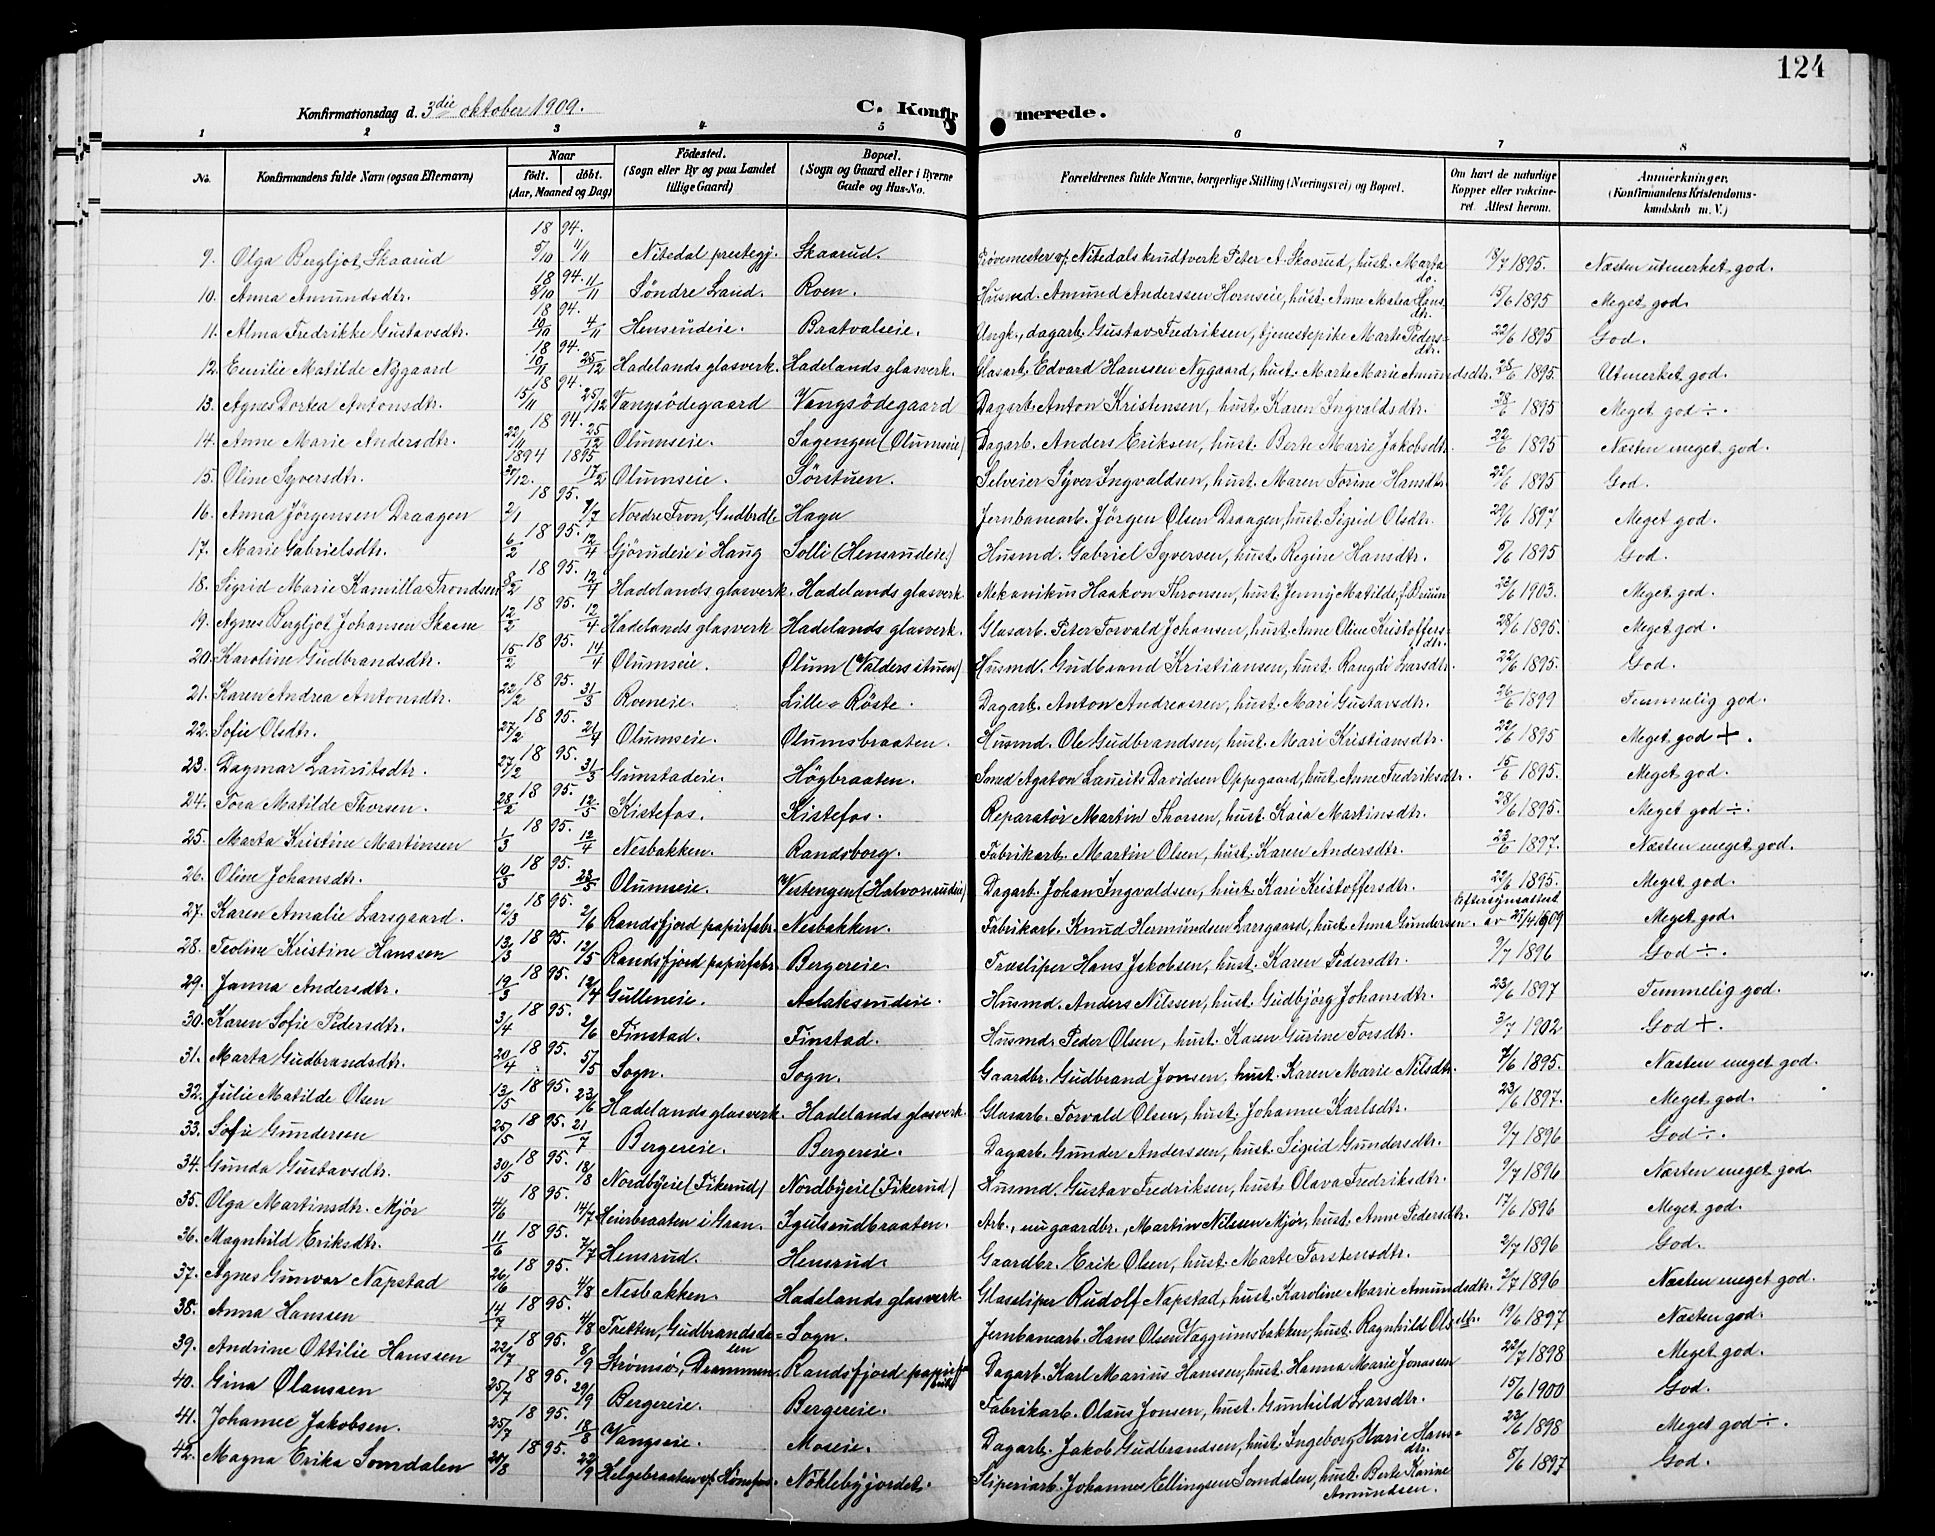 124
Konfirmationsdag d. 3die oktober 1909.
C. Konfirmerede.
1 2 3 4 5 6 7 8
No. Konfirmandens fulde Navn (ogsaa Efternavn) Naar født. døbt. (Aar, Maaned og Dag) Fødested. (Sogn eller By og paa Landet tillige Gaard) Bopæl. (Sogn og Gaard eller i Byerne Gade og Hus-No. Forældrenes fulde Navne, borgerlige Stilling (Næringsvei) og Bopæl. Om havt de naturlige Kopper eller vaccineret. Attest herom. Anmærkninger. (Konfirmandens Kristendomskundskab m. V.)
9. Olga Bergljot Skaarud 1894. 5/10 11/11 Nitedal prestegj. Skaarud. Prøvemester v/ Nitedals krudtverk Peter A. Skaarud, hust. Marta do. 18/7 1895. Næsten utmerket god.
10. Anna Amundsdtr. 1894. 8/10 11/11 Søndre Land. Roen. Husmd. Amund Anderssen Hornseie, hust. Anne Matea Hansdtr. 15/6 1895 Meget god.
11. Alma Fredrikke Gustavsdtr. 1894. 19/10 4/11 Hensrudeie. Bratvaleie. Ungk., dagarb. Gustav Fredriksen, tjenestepike Marte Pedersdtr. 22/6 1895 God.
12. Emilie Matilde Nygaard 1894. 19/11 25/12 Hadelands glasverk. Hadelands glasverk. Glasarb. Edvard Hanssen Nygaard, hust. Marte Marie Amundsdtr. 28/6 1895. Utmerket god.
13. Agnes Dortea Antonsdtr. 1894. 15/11 25/12 Vangsødegaard Vangsødegaard Dagarb. Anton Kristensen, hust. Karen Ingvaldsdtr. 28/6 1895 Meget god ÷.
14. Anne Marie Andersdtr. 1894. 22/11 25/12 Olumseie. Sagengen (Olumseie) Dagarb. Anders Eriksen, hust. Berte Marie Jakobsdtr. 22/6 1895 Næsten meget god.
15. Oline Syversdtr. 1894 1895 /12. 17/2 Olumseie. Sørstuen. Selveier Syver Ingvaldsen, hust. Maren Torine Hansdtr. 22/6 1895 God.
16. Anna Jørgensen Draagen 1895. 2/1 7/7 Nordre Fron, Gudbrdl. Hagu Jernbanearb. Jørgen Olsen Draagen, hust. Sigrid Olsdtr. 29/6 1897 Meget god.
17. Marie Gabrielsdtr. 1895. 6/2 12/4 Gjørudeie i Haug Solli (Hensrudeie.) Husmd. Gabriel Syversen, hust. Regine Hansdtr. 5/6 1895 God.
18. Sigrid Marie Kamilla Trondsen 1895. 8/2 12/4 Hadelands glasverk. Hadelands glasverk Mekanikus Haakon Thronsen, hust. Jenny Matilde, f. Bruun 23/6 1903. Meget god.
19. Agnes Bergljot Johansen Skaane 1895. 12/2 12/4 Hadelands glasverk Hadelands glasverk. Glasarb. Peter Torvald Johansen, hust. Anne Oline Kristoffersdtr. 28/6 1895. Meget god.
20. Karoline Gudbrandsdtr. 1895. 15/2 14/4 Olumseie. Olum (Valdersstuen) Husmd. Gudbrand Kristiansen, hust. Rangdi Larsdtr. 22/6 1895. God.
21. Karen Andrea Antonsdtr. 1895. 22/2 31/3 Roeneie. Lille-Røste. Dagarb. Anton Andreassen, hust. Mari Gustavsdtr. 26/6 1899 Temmelig god.
22. Sofie Olsdtr. 1895. 27/2 21/4 Olumseie. Olumsbraaten. Husmd. Ole Gudbrandsen, hust. Mari Kristiansdtr. 22/6 1895 Meget god +.
23. Dagmar Lauritsdtr. 1895. 27/2 31/3 Gunstadeie. Høgbraaten. Smed Agaton Laurits Davidsen Oppegaard, hust. Anne Fredriksdtr. 15/6 1895. Meget god.
24. Tora Matilde Thorsen. 1895. 28/2 12/5 Kistefos. Kistefos. Reparatør Martin Thorsen, hust. Kaia Martinsdtr. 28/6 1895. Meget god ÷.
25. Marta Kristine Martinsen 1895. 1/3 12/4 Nesbakken. Randsborg. Fabrikarb. Martin Olsen, hust. Karen Andersdtr. 23/6 1897. Næsten meget god.
26. Oline Johansdtr. 1895. 10/3 23/5 Olumseie. Vestengen (Halvorsrudeie) Dagarb. Johan Ingvaldsen, hust. Kari Kristoffersdtr. 22/6 1895. Meget god.
27. Karen Amalie Larsgaard. 1895. 12/3 2/6 Randsfjord papirfabr. Nesbakken. Fabrikarb. Knud Hermundsen Larsgaard, hust. Anna Gundersen. Eftersynsattest av 27/4 1909 Meget god.
28. Teoline Kristine Hanssen 1895. 13/3 12/5 Randsfjord papirfabr Bergereie. Træsliper Hans Jakobsen, hust. Karen Pedersdtr. 9/7 1896 God ÷.
29. Janna Andersdtr. 1895. 19/3 12/4 Gulleneie. Aslaksrudeie. Husmd. Anders Nilssen, hust. Gudbjørg Johansdtr. 23/6 1897 Temmelig god.
30. Karen Sofie Pedersdtr. 1895. 3/4 2/6 Finstad. Finstad. Husmd. Peder Olsen, hust. Karen Gurine Torsdtr. 3/7 1902 God +.
31. Marta Gudbrandsdtr. 1895. 20/4 5/5 Sogn. Sogn. Gaardbr. Gudbrand Jonsen, hust. Karen Marie Nilsdtr. 7/6 1895. Næsten meget god.
32. Julie Matilde Olsen 1895. 13/5 23/6 Hadelands glasverk. Hadelands glasverk Glasarb. Torvald Olsen, hust. Johanne Karlsdtr. 23/6 1897. Meget god.
33. Sofie Gundersen 1895. 25/5 21/7 Bergereie. Bergereie. Dagarb. Gunder Anderssen, hust. Sigrid Gundersdtr. 9/7 1896 God ÷.
34. Gunda Gustavsdtr. 1895. 30/5 18/8 Nordbyeie (Fikerud) Nordbyeie (Fikerud) Husmd. Gustav Fredriksen, hust. Olava Fredriksdtr. 9/7 1896 Næsten meget god
35. Olga Martinsdtr. Mjør 1895. 4/6 14/7 Heiersbraaten i Gran. Igulsrudbraaten. Arb., nu gaardbr., Martin Nilssen Mjør, hust. Anne Pedersdtr. 17/6 1896 Meget god.
36. Magnhild Eriksdtr. 1895. 11/6 7/7 Hensrud. Hensrud. Gaardbr. Erik Olsen, hust. Marte Torstensdtr. 2/7 1896 God.
37. Agnes Gunvor Napstad 1895. 26/6 4/8 Nesbakken. Hadelands glasverk. Glassliper Rudolf Napstad, hust. Karoline Marie Amundsdtr. 2/7 1896 Næsten meget god.
38. Anna Hanssen 1895. 14/7 4/8 Tretten, Gudbrandsdalen Sogn. Jernbanearb. Hans Olsen Væggumsbakken, hust. Ragnhild Olsdtr. 19/6 1897 Næsten god.
39. Andrine Ottilie Hanssen 1895. 22/7 8/9 Strømsø, Drammen. Randsfjord papirfabrik Dagarb. Karl Marius Hanssen, hust. Hanna Marie Jonassen 22/7 1898 Meget god.
40. Gina Olaussen 1895. 25/7 29/9 Bergereie. Bergereie. Fabrikarb. Olaus Jonsen, hust. Gunhild Larsdtr. 15/6 1900 God.
41. Johanne Jakobsen. 1895. 25/7 18/8 Vangseie. Moseie. Dagarb. Jakob Gudbrandsen, hust. Ingeborg Marie Hansdtr. 23/6 1898 Meget god ÷.
42. Magna Erika Somdalen 1895. /8 22/9 Helgebraaten v/ Hønefos. Noklebyjordet. Sliperiarb. Johannes Ellingsen Somdalen, hust. Berte Karine Amundsen. 8/6 1897 God.